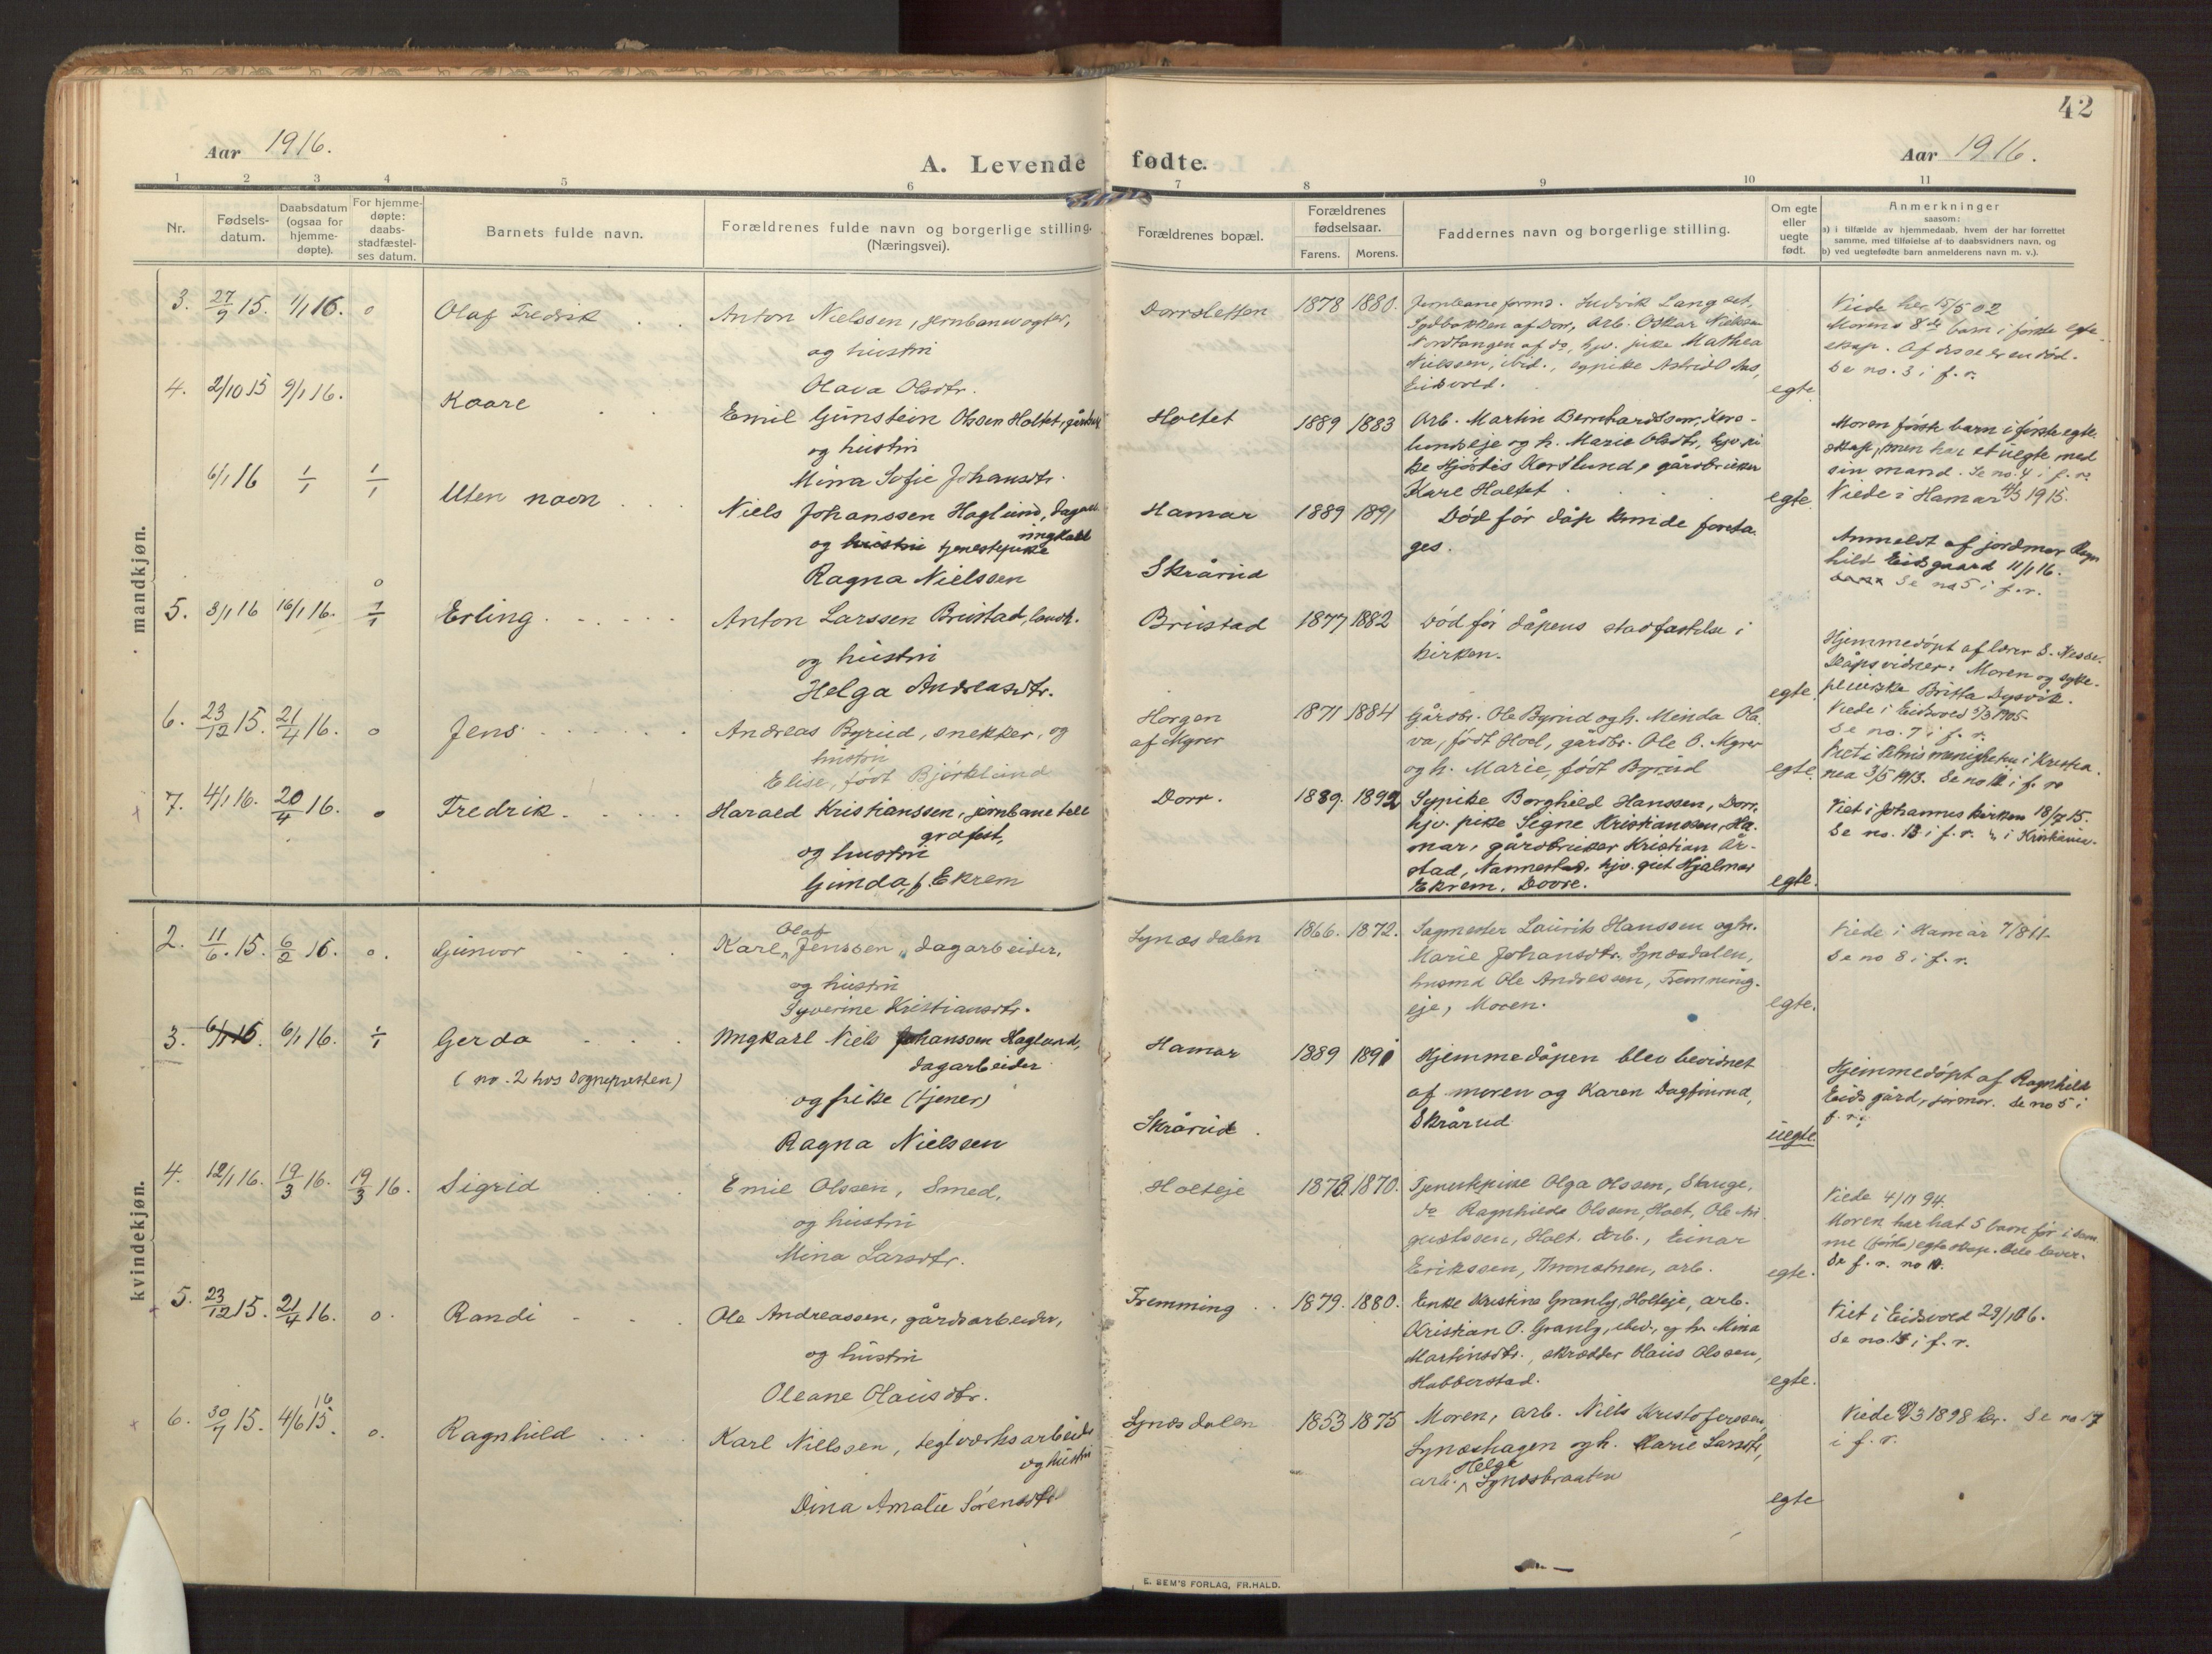 42
Aar 1916.
A. Levende fødte.
Aar 1916.
1 2 3 4 5 6 7 8 9 10 11
Nr.
Fødsels-
datum.
Daabsdatum
(ogsaa for
hjemme-
døpte).
For hjemme-
døpte:
daabs-
stadfæstel-
ses datum.
Barnets fulde navn.
Forældrenes fulde navn og borgerlige stilling.
(Næringsvei).
Forældrenes bopæl.
Forældrenes
fødselsaar.
Farens. Morens.
Faddernes navn og borgerlige stilling.
Om egte
eller
uegte
født.
Anmerkninger
saasom:
a) i tilfælde av hjemmedaab, hvem der har forrettet
samme, med tilføielse af to daabsvidners navn, og
b) ved uegtefødte barn anmelderens navn m. v.).
mandkjøn.
3. 27/9 15. 1/1 16. 0
Olaf Fredrik
Anton Nielssen, jernbanevogter,
og hustru
Olava Olsdtr.
Dorrsletten
1878 1880.
Jernbaneformd. Ludvik Langset,
Sydbakken af Dorr, arb. Oskar Nielssen
Nordtangen af do, hjv. pike Mathea
Nielssen, ibid., sypike Astrid Aas,
Eidsvold.
egte
Viede her 15/5 02
Morens 8de barn i første egte-
skap. Af disse er en død.
Se no. 3 i f. r.
4. 2/10 15 9/1 16.
Kaare
Emil Gunstein Olssen Holtet, gårdbr.
og hustru
Mina Sofie Johansdtr.
Holtet
1889 1883
Arb. Martin Bernhardssen,
og h. Marie Olsdtr, hjv. pi
ke Hjørdis Kortlund, gårdbruker
Karl Holtet
egte.
Moren første barn i første egte-
skap, men har et uegte med
sin mand. Se no. 4 i f. r.
Viede i Hamar 1915.
6/1 16 1/1 1/1
Uten navn
Niels Johanssen Haglund, dagarb.
ungkarl
og hustru tjenestepike
Ragna Nielssen
Hamar
Skrårud
1889 1891
Død før dåp kunde foreta-
ges.
Anmeldt af jordmor Ragn
hild Eidsgaard 11/1 16.
Se no 5 i f. r.
5. 8/1 16 16/1 16. 0 1/1
Erling
Anton Larssen Brustad, landh.
og hustru
Helga Andreasdtr.
Brustad
1877 1882
Død før dåpens stadfæstelse i
kirken.
egte
Hjemmedøpt af lærer S. Nesse.
Dåpsvidner: Moren og syke-
pleierske Britta Dysvik.
Viede i Eidsvold 5/3 1905.
Se no. 7 i f. r.
6. 23/12 15. 21/4 16. 0
Jens
Andreas Byrud, snekker, og
hustru
Elise, født Bjørklund
Horgen
af Myrer
1871 1884
Gårdbr. Ole Byrud og h. Minda Ola
va, født Hoel, gårdbr. Ole O. Myrer
og h. Marie, født Byrud
egte
Viet i menigheten i Kristia
nea 3/5 1913. Se no i f. r
7. 4/1 16. 20/4 16. 0
Fredrik
Harald Kristianssen, jernbanetele
grafist,
og hustru
Gunda, f. Ekrem
Dorr.
1889. 1892
Sypike Borghild Hanssen, Dorr,
hjv. pike Signe Kristianssen, Ha-
mar, gårdbruker Kristian År-
stad, Nannestad, hjv. gut Hjalmar
Ekrem, Dovre.
egte.
Viet i Johanneskirken 18/7 15.
Se no. 13 i f. r. i Kristiania.
kvindekjøn.
2. 11/6 15. 6/2 16. 0.
Gunvor
Olaf
Karl Jenssen, dagarbeider,
og hustru
Syverine Kristiansdtr.
Synæsdalen
1866. 1872.
Sagmester Laurits Hanssen og h.
Marie Johansdtr. Synæsdalen,
husmd Ole Andreassen, Fremming-
eje, Moren.
egte.
Viede i Hamar 7/8 11.
Se no 8 i f. r.
3. 6/1 16. 6/1 16. 1/1
Gerda
(no. 2 hos Sognepresten)
Ungkarl Niels Johanssen Haglund,
dagarbeider
og pike (tjener)
Ragna Nielssen
Hamar
Skrårud.
1889 1891
Hjemmedåpen blev bevidnet
af moren og Karen Dagfinrud,
Skrårud
uegte
Hjemmedøpt af Ragnhild
Eidsgård, jormor. Se no 5 i
f. r.
4. 12/1 16. 19/3 16. 19/3 16.
Sigrid
Emil Olssen, Smed,
og hustru
Mina Larsdtr.
Holteje
1873 1870.
Tjenestpike Olga Olssen, Stuge,
do Ragnhilde Olssen, Holt, Ole Au
gustssen, Holt. arb., Einar
Erikssen, arb.
egte.
Viede 4/11 94.
Moren har hat 5 barn før i sam
me (første) egteskap. Alle lever.
Se f. r. no
5. 23/12 15. 21/4 16. 0.
Randi
Ole Andreassen, gårdsarbeider,
og hustru
Oleane Olausdtr.
Fremming
1879. 1880.
Enke Kristine Granly, Holteje, arb.
Kristian P. Granly, ibid., og h. Mina
Martinsdtr., skrædder Olaus Olssen,
Habberstad.
egte.
Viet i Eidsvold 29/1 06.
Se no. i f. r.
6. 30/7 15. 4/6 15. 16 0.
Ragnhild
Karl Nielssen, teglværksarbeider
og hustru
Dina Amalie Sørensdtr
Synæsdalen
1853 1875
Moren, arb. Niels Kristoferssen,
Synæshagen og h. Marie Larsdtr,
Helge
arb. Synæsbraaten
egte
Viede 1898 her. Se no 17
i f. r.
E. SEM'S FORLAG, FR.HALD.